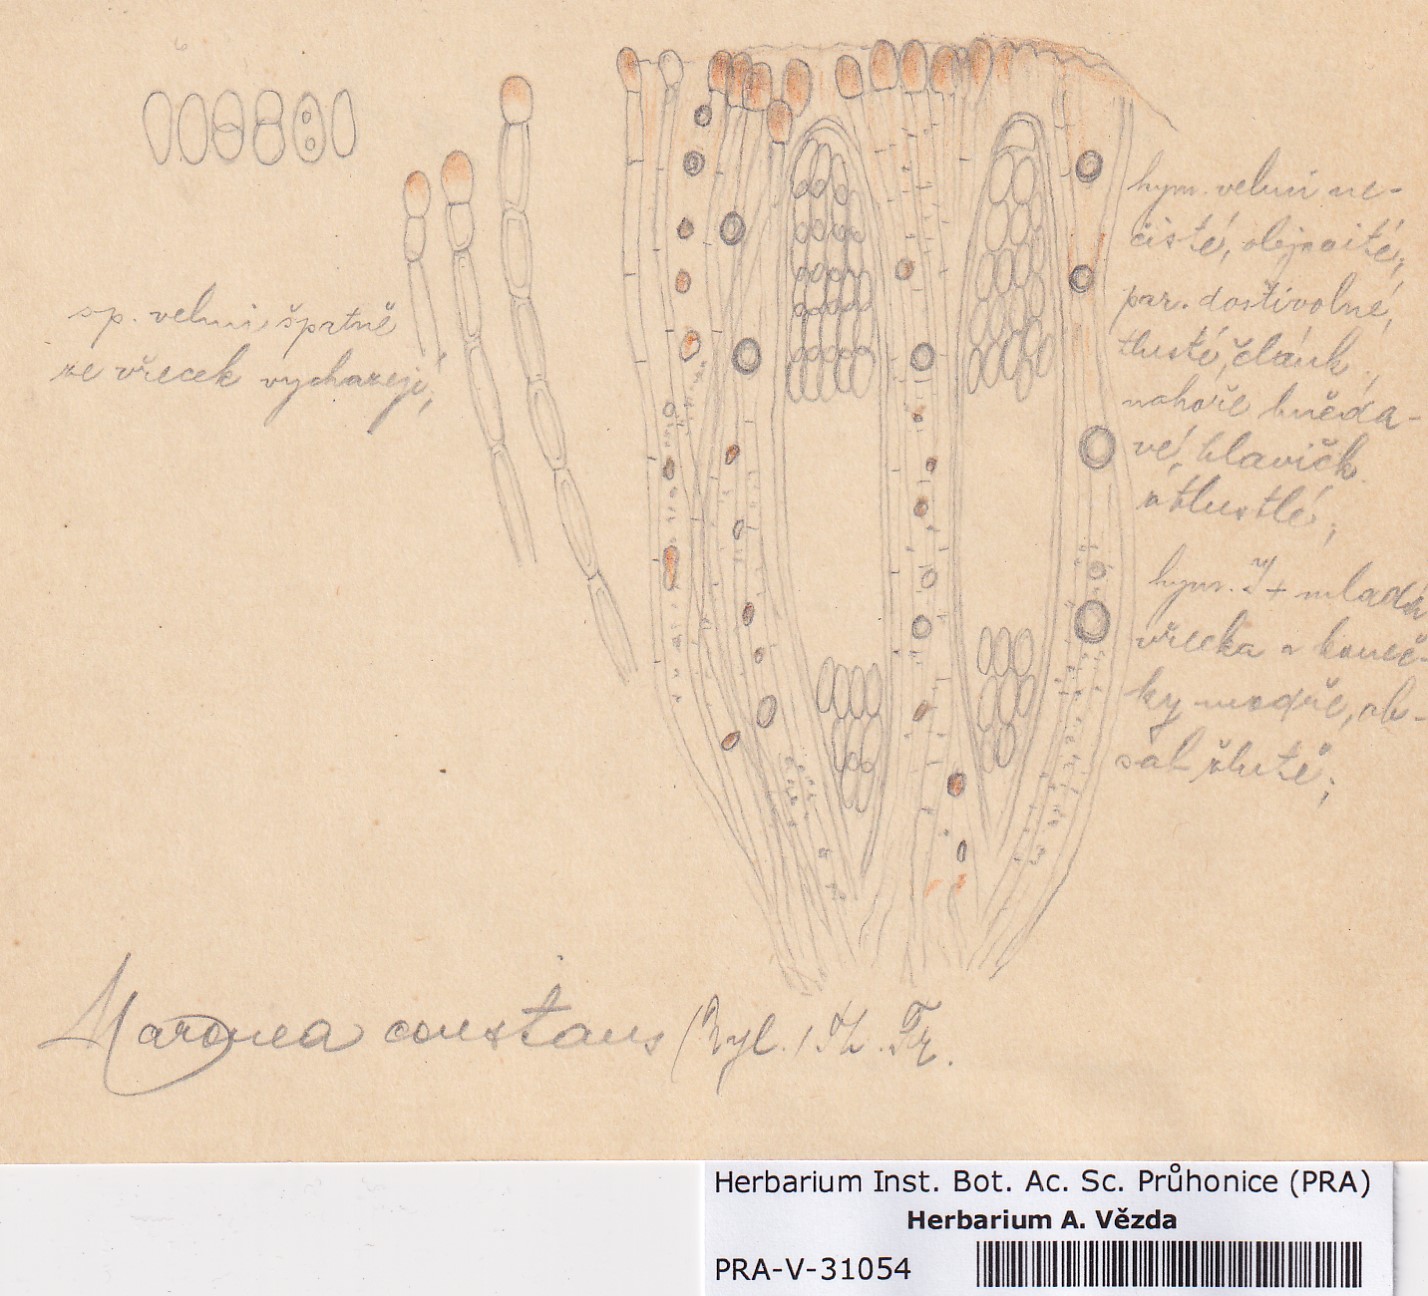 sp. velmi špatně
ze vřecek vycházejí;
hym. velmi ne-
čisté, olejovité,
par. dosti volné,
tlusté, článk.,
nahoře hněda-
vé, hlavičk.
ztlustlé;
hym. J + mladá
vřecka a koneč-
ky modře, ob-
sah žlutě;
Maronea constans (Nyl.) Th. Fr.
Herbarium Inst. Bot. Ac. Sc. Průhonice (PRA)
Herbarium A. Vězda
PRA-V-31054